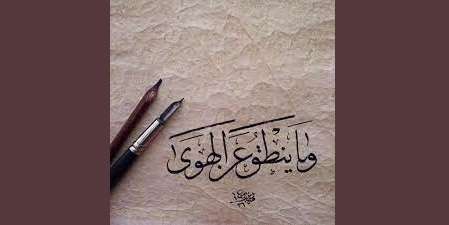 وَمَا يَنْطِقُ عَنِ الْهَوَىٰ